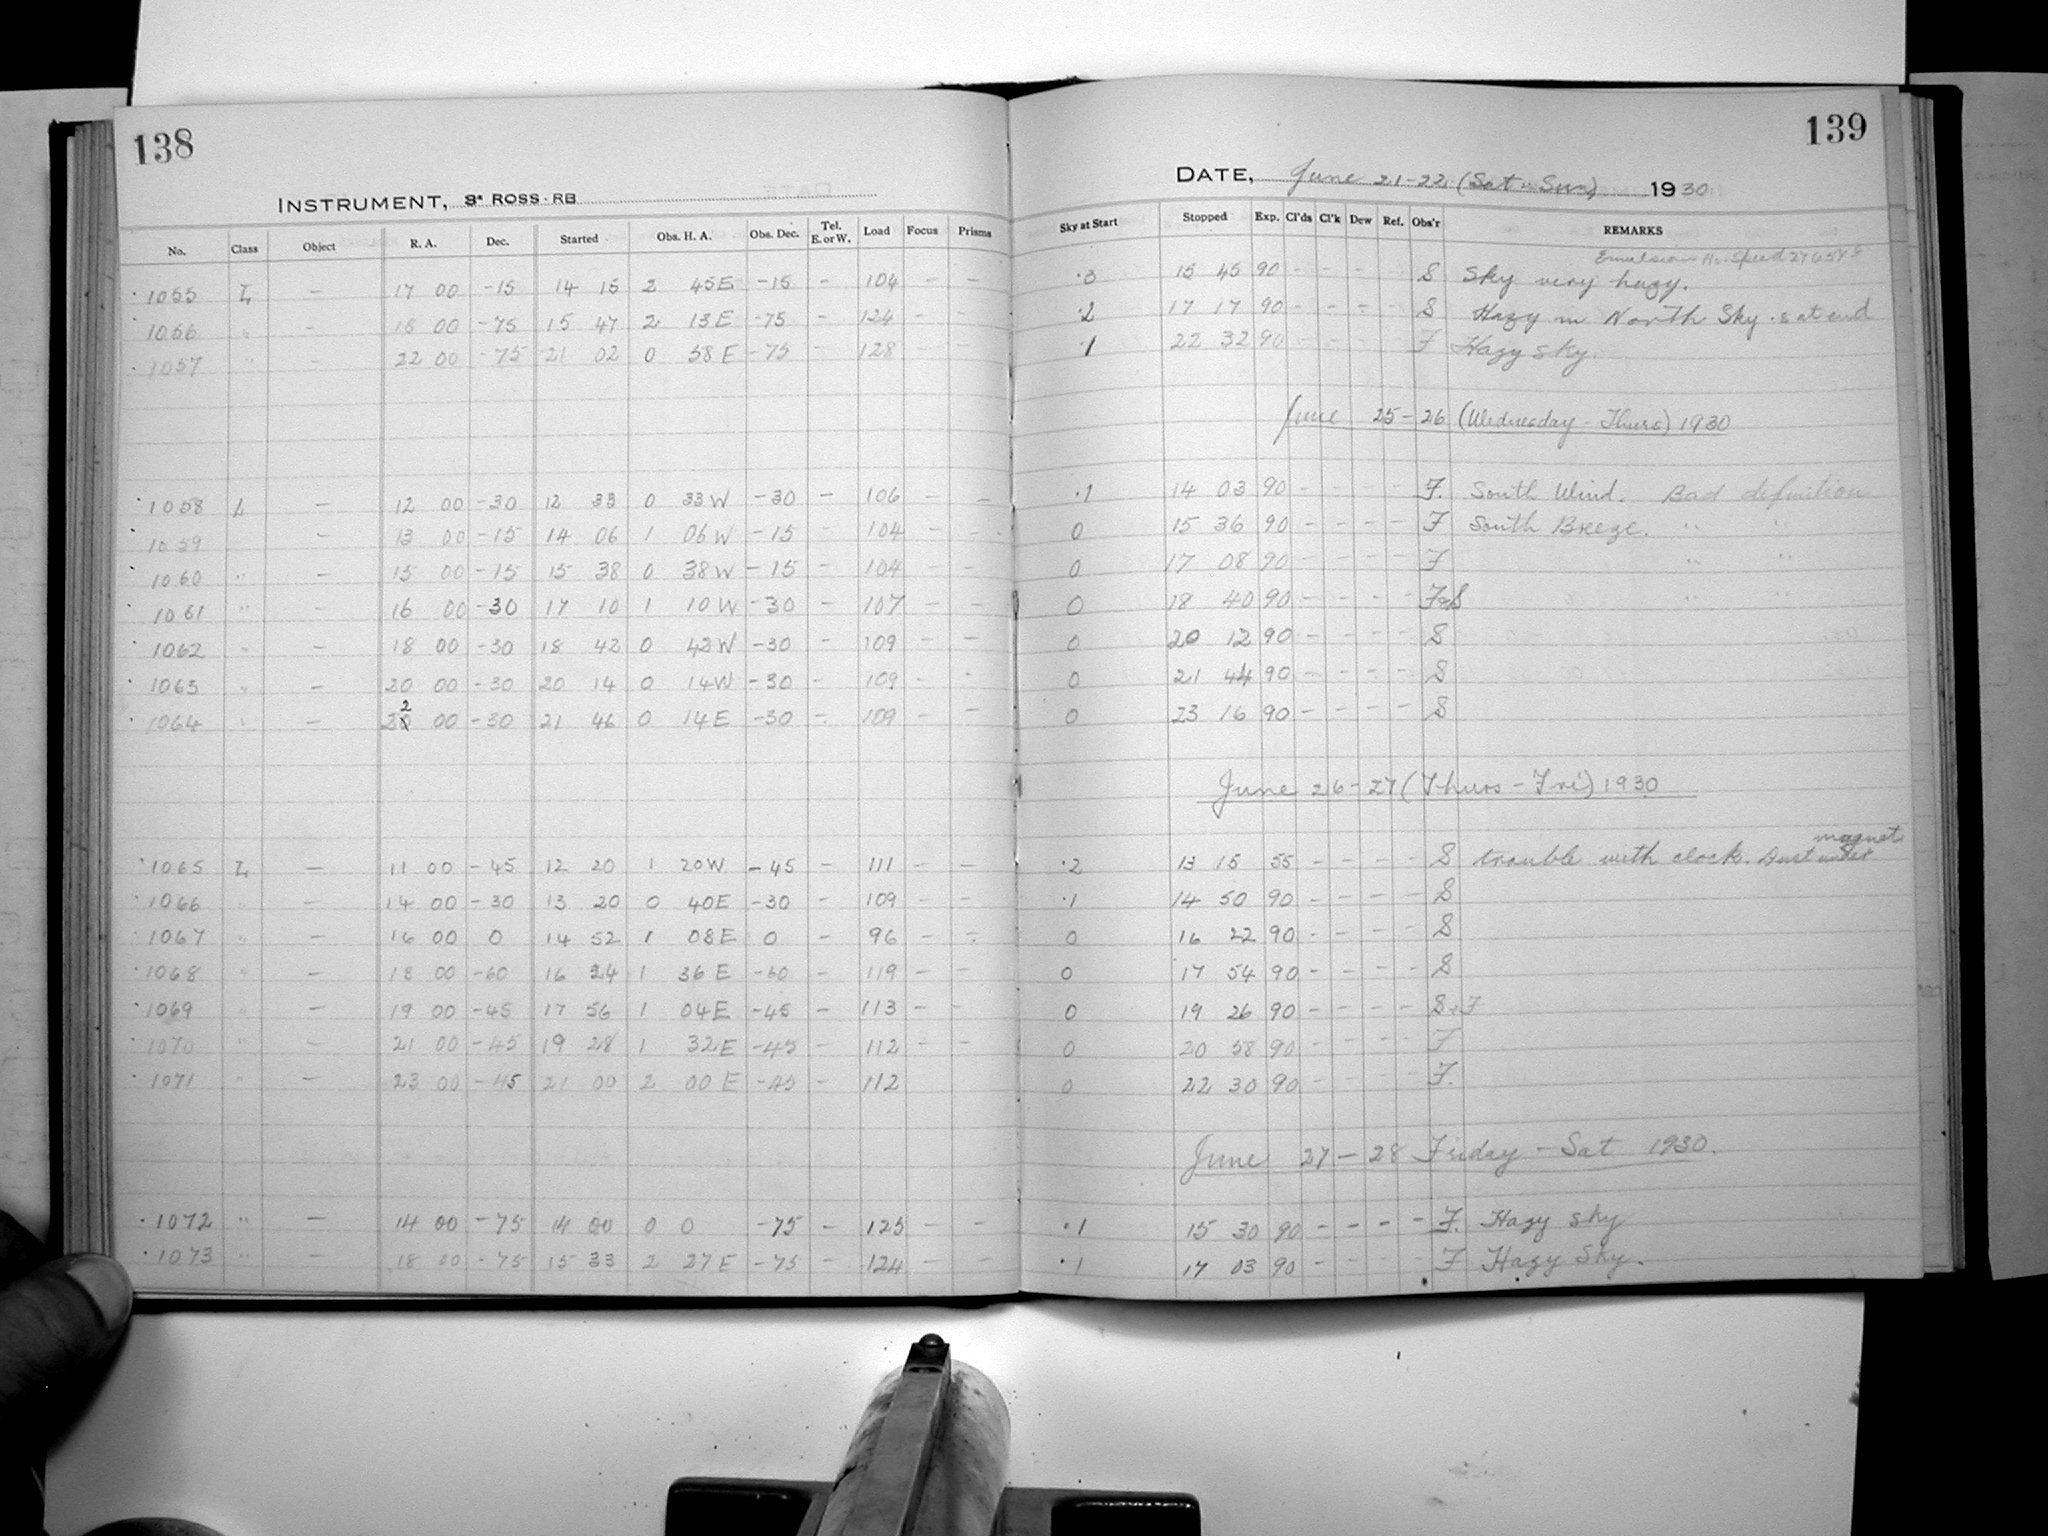 138
INSTRUMENT, 3" ROSS-RB
No. Class Object R. A. Dec. Started Obs. H. A. Obs. Dec. Tel. E. or W. Load Focus Prisms
1055 L — 17 00 -15 14 15 2 45E -15 - 104 - -
1056 " — 18 00 -75 15 47 2 13E -75 - 124 - -
1057 " — 22 00 -75 21 02 0 58E -75 - 128 - -
1058 L — 12 00 -30 12 33 0 33W -30 - 106 - -
1059 — 13 00 -15 14 06 1 06W -15 - 104 - -
1060 " — 15 00 -15 15 38 0 38W -15 - 104 - -
1061 " — 16 00 -30 17 10 1 10W -30 - 107 - -
1062 " — 18 00 -30 18 42 0 42W -30 - 109 - -
1063 " — 20 00 -30 20 14 0 14W -30 - 109 - -
1064 " — 22 00 -30 21 46 0 14E -30 - 109 - -
1065 L — 11 00 -45 12 20 1 20W -45 - 111 - -
1066 " — 14 00 -30 13 20 0 40E -30 - 109 - -
1067 " — 16 00 0 14 52 1 08E 0 - 96 - -
1068 " — 18 00 -60 16 24 1 36E -60 - 119 - -
1069 " — 19 00 -45 17 56 1 04E -45 - 113 - -
1070 " — 21 00 -45 19 28 1 32E -45 - 112 - -
1071 " — 23 00 -45 21 00 2 00E -45 - 112
1072 " — 14 00 -75 14 00 0 0 -75 - 125 - -
1073 " — 18 00 -75 15 33 2 27E -75 - 124 - -
139
DATE, June 21-22 (Sat - Sun) 1930
Sky at Start Stopped Exp. Cl'ds Cl'k Dew Ref. Obs'r REMARKS
Emulsion Speed
.3 15 45 90 - - - - S Sky very hazy.
.2 17 17 90 - - - - S Hazy in North Sky . s at end
.1 22 32 90 - - - - F Hazy Sky.
June 25-26 (Wednesday - Thurs) 1930
.1 14 03 90 - - - - F. South Wind. Bad definition
0 15 36 90 - - - - F South Breeze. " "
0 17 08 90 - - - - F " "
0 18 40 90 - - - - F&S " "
0 20 12 90 - - - - S
0 21 44 90 - - - - S
0 23 16 90 - - - - S
June 26-27 (Thurs - Fri) 1930
.2 13 15 55 - - - - S trouble with clock. Dust under magnet
.1 14 50 90 - - - - S
0 16 22 90 - - - - S
0 17 54 90 - - - - S
0 19 26 90 - - - - S+F
0 20 58 90 - - - - F
0 22 30 90 - - - - F.
June 27-28 Friday - Sat 1930.
.1 15 30 90 - - - - F. Hazy sky
.1 17 03 90 - - - - F Hazy Sky.